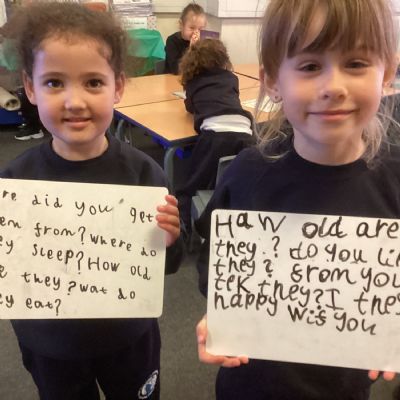 re did you get
em from? where do
ey sleep? How old
e they? wat do
ey eat?
How old are
they? do you lik
they? from you
tek they? I they
happy wis you